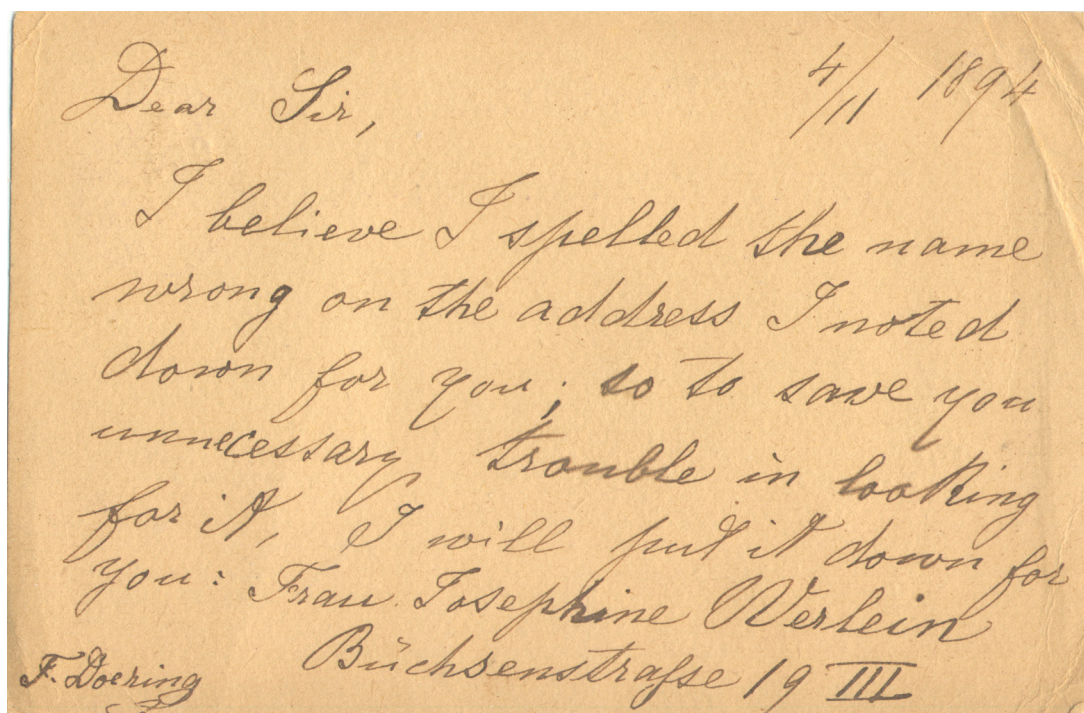 4/11 1894
Dear Sir,
I believe I spelled the name
wrong on the address I noted
down for you; so to save you
unnecessary trouble in looking
for it, I will put it down for
you: Frau Josephine Werlein
Büchsenstraſse 19 III
F. Doering